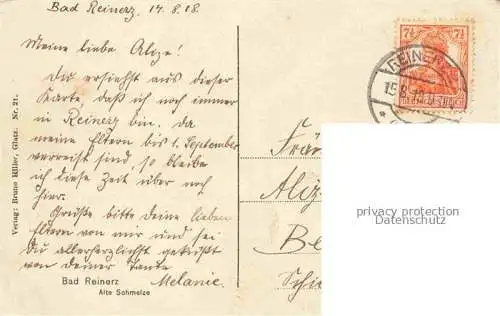 Bad Reinerz, 14.8.18.
Meine liebe Alize!
Du ersiehst aus dieser
Karte, daß ich noch immer
in Reinerz bin. Da
meine Eltern bis 1. September
verreist sind, so bleibe
ich diese Zeit über noch
hier.
Grüße bitte deine lieben
Eltern von mir und sei
Du allerherzlichst geküßt
von deiner Tante
Melanie.
Bad Reinerz
Alte Schmelze
Verlag: Bruno Hiller, Glatz. Nr. 21.
7½ 7½
REINERZ
15.8.18
Fräu
Aliz
Be
Schi
privacy protection
Datenschutz